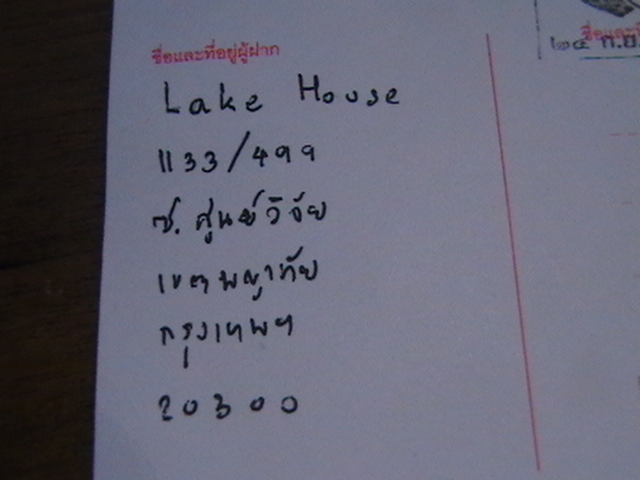 ชื่อและที่อยู่ผู้ฝาก
Lake House
1133/499
ซ.ศูนย์วิจัย
เขตพญาไท
กรุงเทพฯ
20300
๒๔ ก.ย.